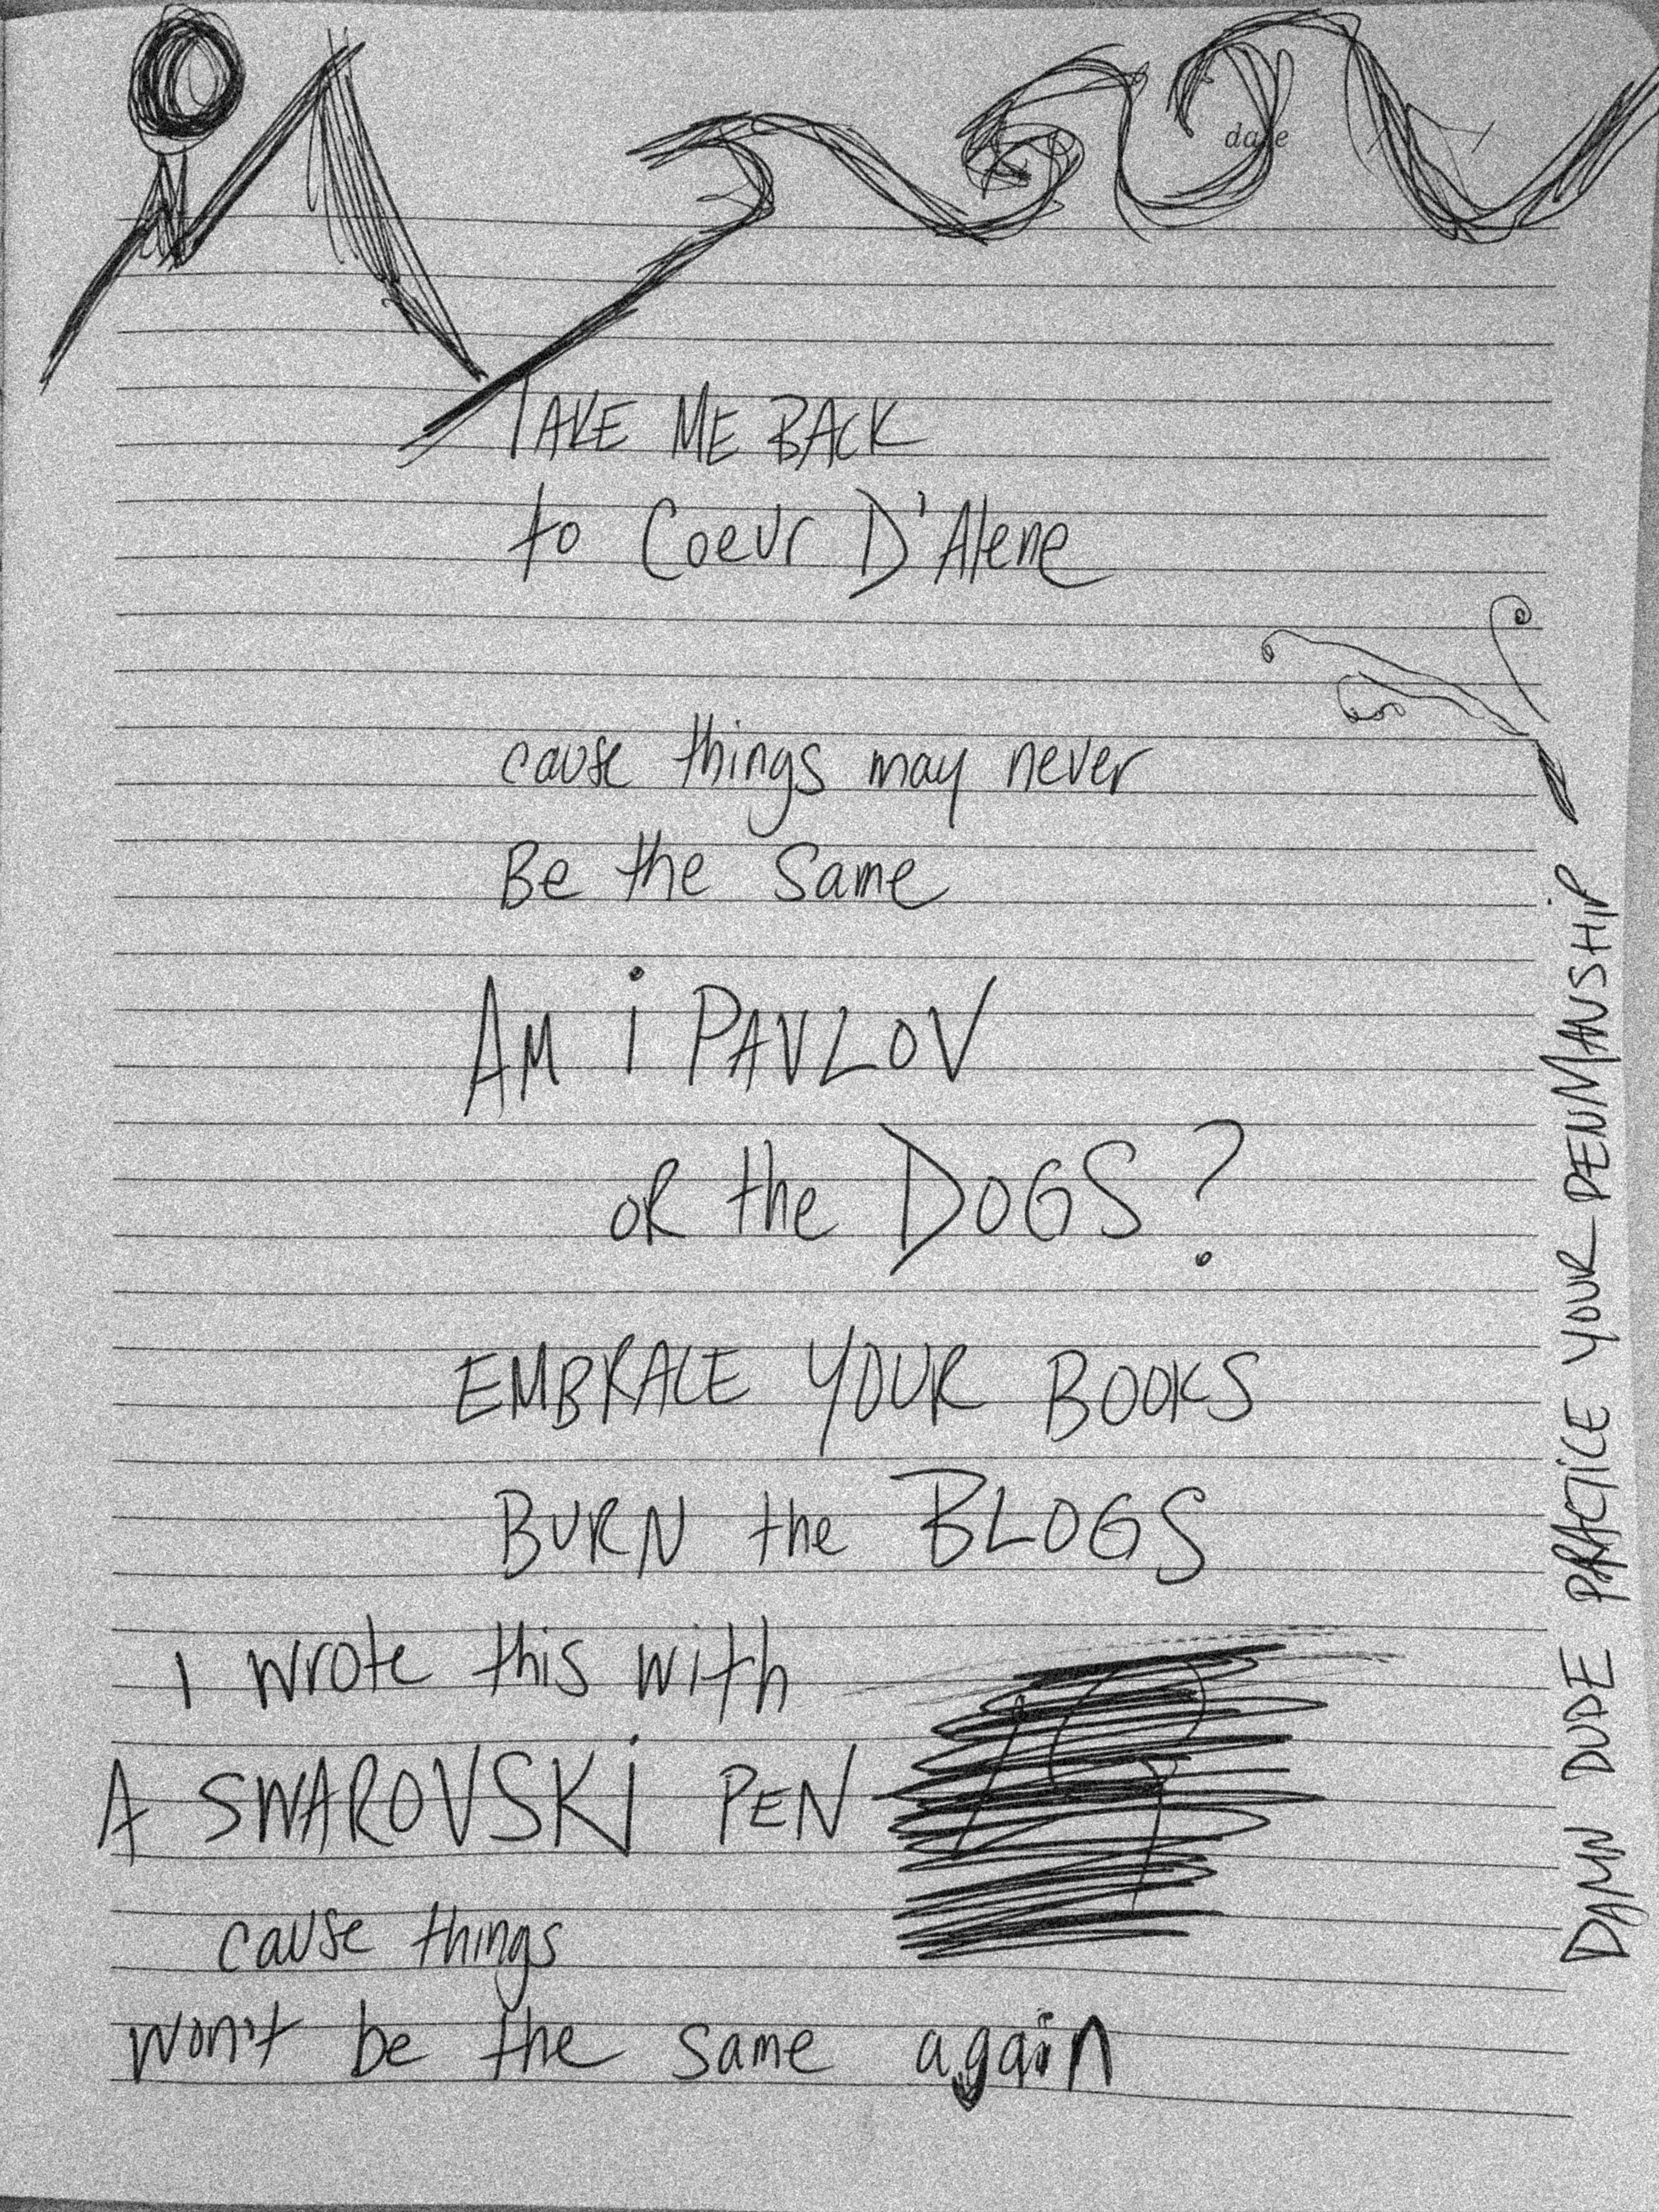 date
TAKE ME BACK
to Coeur D'Alene
cause things may never
Be the same
AM i PAVLOV
oR the DOGS?
EMBRACE YOUR BOOKS
BURN the BLOGS
I wrote this with
A SWAROVSKi PEN
cause things
won't be the same again
DAMN DUDE PRACTiCE YOUR PENMANSHiP